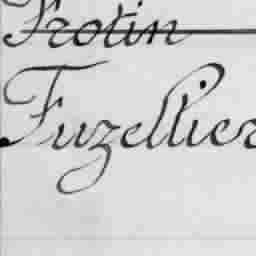 Frotin
Fuzellier